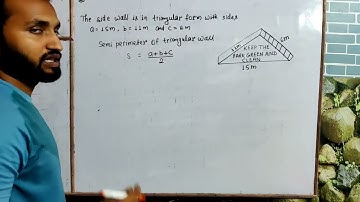 The side wall is in triangular form with sides
a = 15m, b = 11m and c = 6m
Semi perimeter of triangular wall
s = a+b+c
2
11m
6m
KEEP THE
PARK GREEN AND
CLEAN
15m